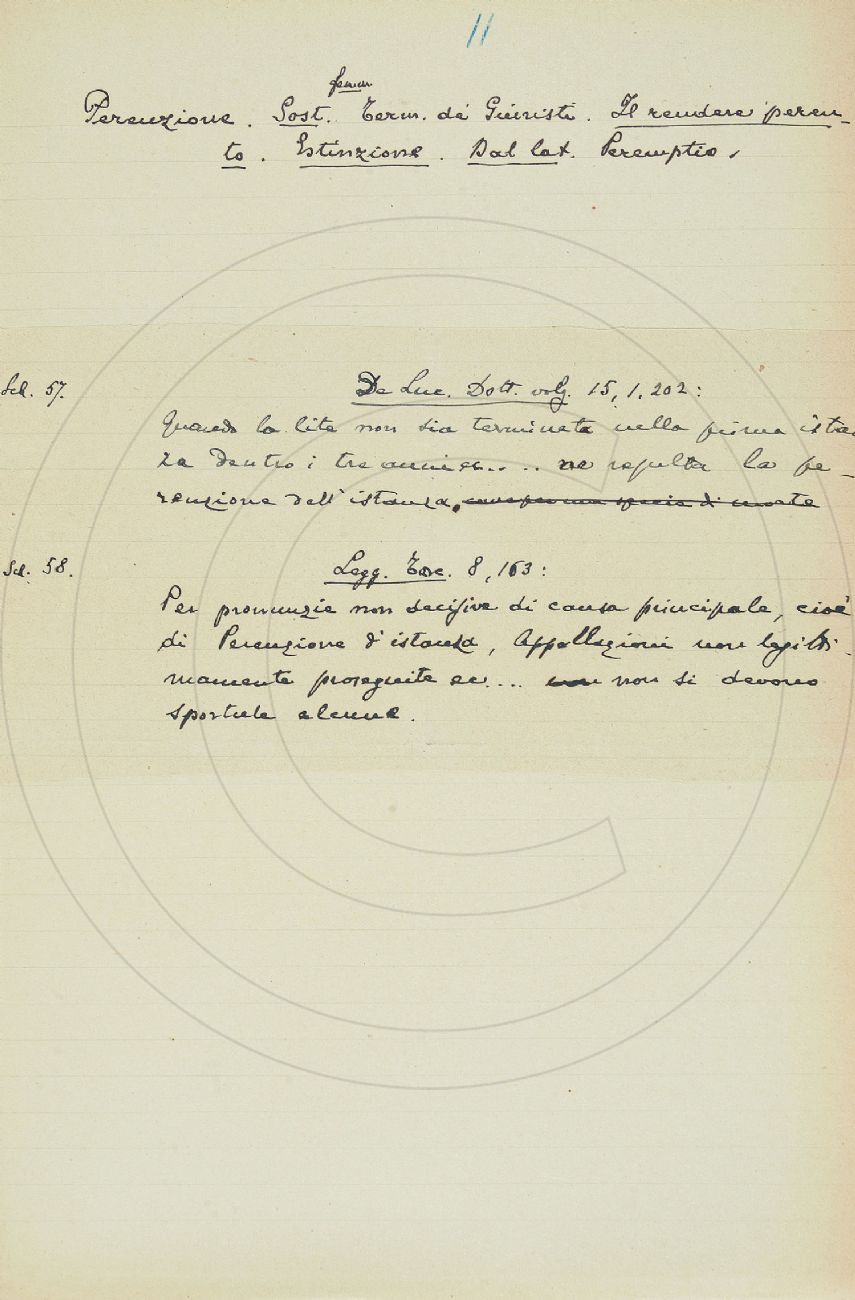 11
femm
Perenzione. Sost. Term. de' Giuristi. Il rendere peren-
to. Estinzione. Dal lat. Peremptio.
Sch. 57. De Luc. Dott. volg. 15, 1, 202:
Quando la lite non sia terminata nella prima istan
za dentro i tre anni ec.... ne resulta la pe-
renzione dell'istanza, come per una specie di morte
Sch. 58. Legg. Tosc. 8, 163:
Per pronunzie non decisive di causa principale, cioè
di Perenzione d'istanza, Appellazioni non legitti-
mamente proseguite ec.... non non si devono
sportule alcune.